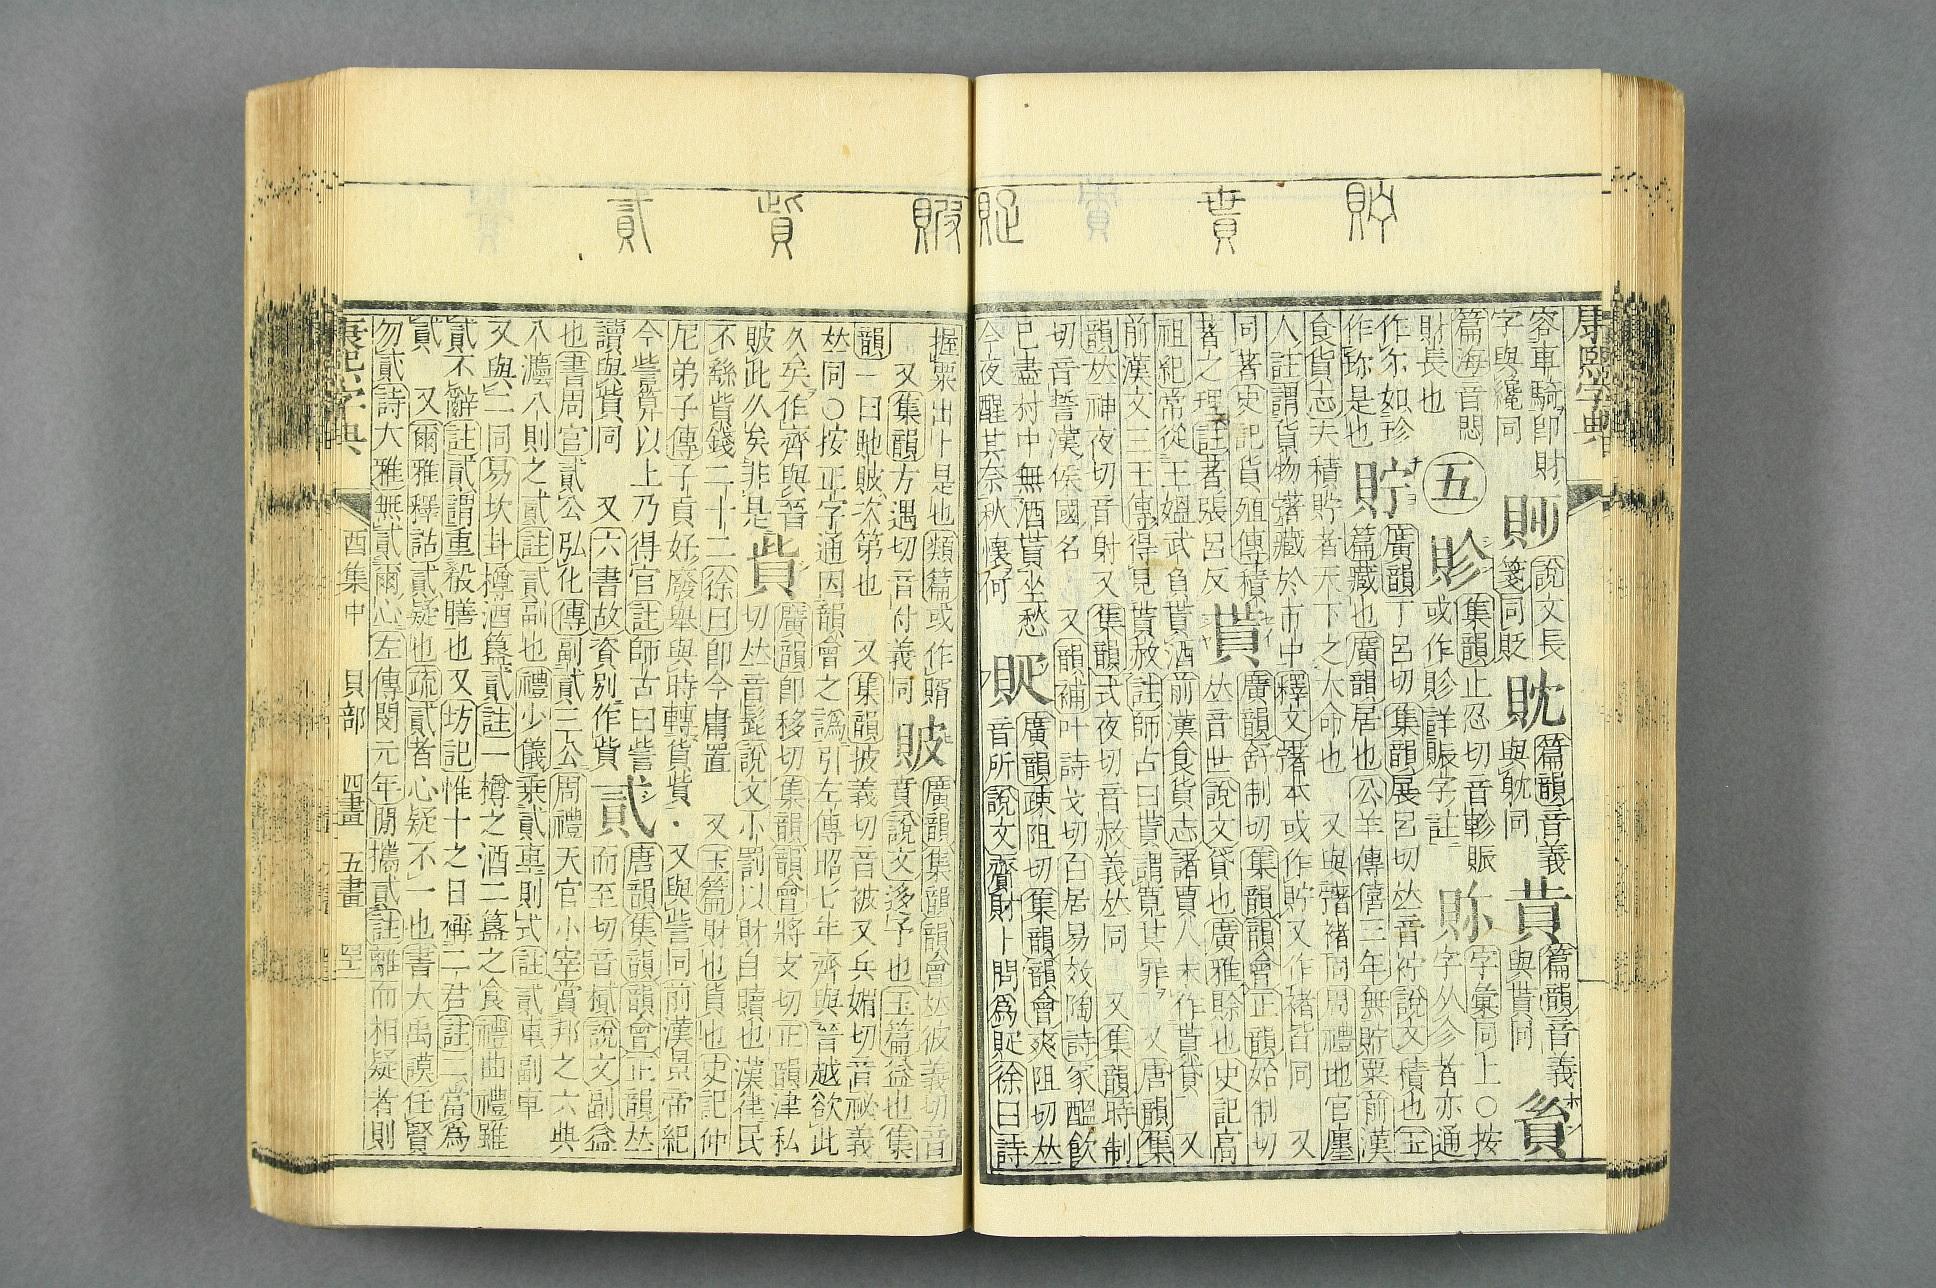 貯
貰
貲
貳
康熙字典
客車騎卽財
字與纔同
說文長
箋同貶
篇韻音義
與躭同
篇韻音義
與貰同
篇海音悶
財長也
五
集韻止忍切音軫賑
或作貶詳賑字註
字彙同上○按
字从㐱者亦通
作尓如珍
作珎是也
貯
廣韻丁呂切集韻展呂切𠀤音佇說文積也玉
篇藏也廣韻居也公羊傳僖三年無貯粟前漢
食貨志夫積貯者天下之大命也 又與褚同周禮地官廛
人註謂貨物藏於市中釋文本或作貯又作褚皆同 又
同著史記貨殖傳積
著之理註著張呂反
貰
廣韻舒制切集韻韻會正韻始制切
𠀤音世說文貸也廣雅賒也史記高
祖紀常從王媼武負貰酒前漢食貨志諸賈人末作貰貸 又
前漢文三王傳得見貰赦註師古曰貰謂寬其罪 又唐韻集
韻𠀤神夜切音射又集韻式夜切音赦義𠀤同 又集韻時制
切音誓漢侯國名 又韻補叶詩戈切白居易效陶詩家醞飮
已盡村中無酒貰坐愁
今夜醒其奈秋懷何
䝪
廣韻疎阻切集韻韻會爽阻切𠀤
音所說文齎財卜問爲䝪徐曰詩
握粟出卜是也類篇或作䝼
又集韻方遇切音付義同
貱
廣韻集韻韻會𠀤彼義切音
賁說文迻予也玉篇益也集
韻一曰貤貱次第也 又集韻披義切音被又兵媚切音祕義
𠀤同○按正字通因韻會之譌引左傳昭七年齊與晉越欲此
久矣作齊與晉
貱此久矣非是
貲
廣韻卽移切集韻韻會將支切正韻津私
切𠀤音髭說文小罰以財自贖也漢律民
不繇貲錢二十二徐曰卽今庸置 又玉篇財也貨也史記仲
尼弟子傳子貢好廢舉與時轉貨貲 又與訾同前漢景帝紀
今訾算以上乃得官註師古曰訾
讀與貲同 又六書故資別作貲
貳
唐韻集韻韻會正韻𠀤
而至切音樲說文副益
也書周官貳公弘化傳副貳三公 周禮天官小宰掌邦之六典
八灋八則之貳註貳副也禮少儀乗貳車則式註貳車副車
又與二同易坎卦樽酒簋貳註一樽之酒二簋之食禮曲禮雖
貳不辭註貳謂重殽膳也又坊記惟卜之日稱二君註二當爲
貳 又爾雅釋詁貳疑也疏貳者心疑不一也書大禹謨任賢
勿貳詩大雅無貳爾心左傳閔元年閒攜貳註離而相疑者則
康熙字典 酉集中 貝部 四畫 五畫